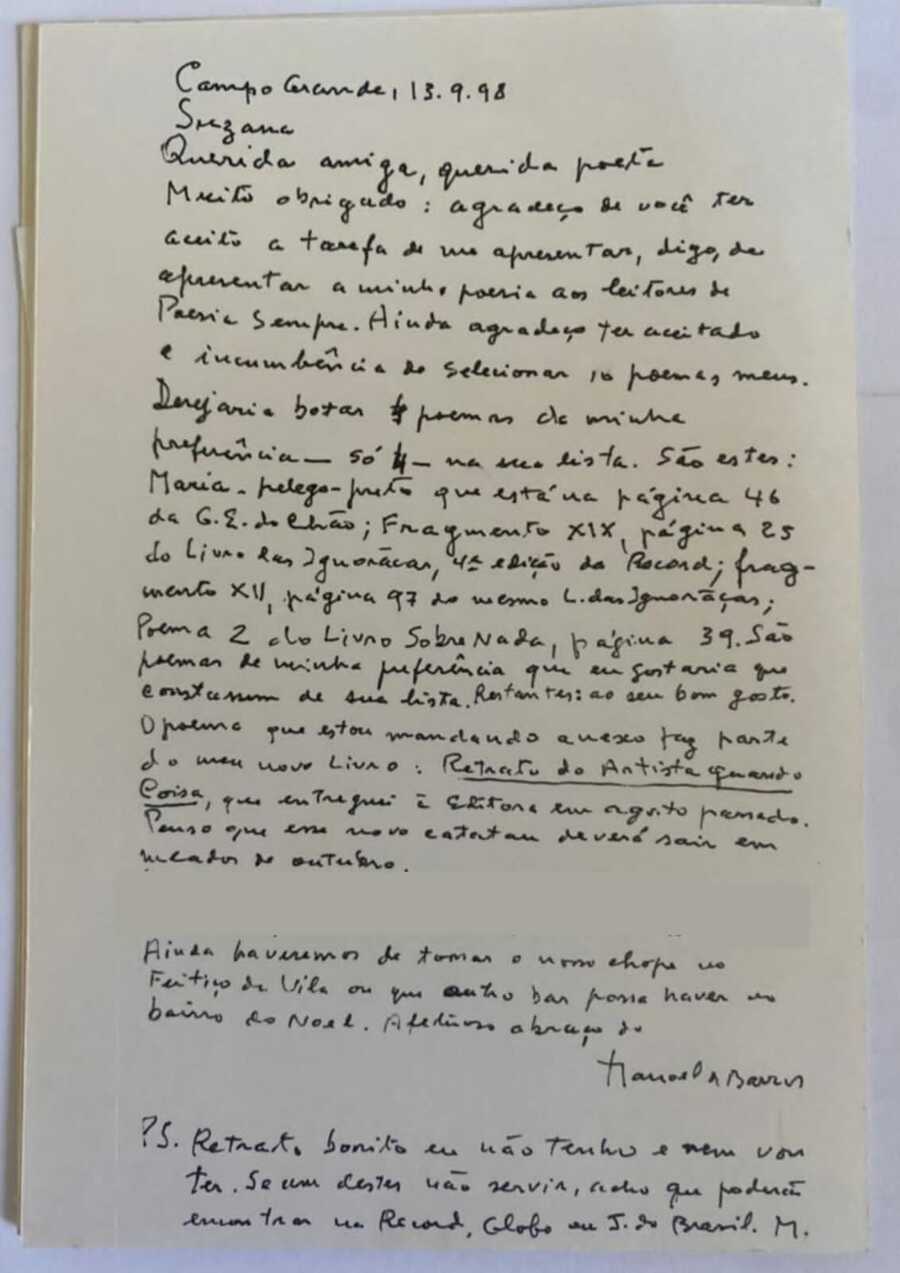 Campo Grande, 13.9.98
Suzana
Querida amiga, querida poeta
Muito obrigado: agradeço de você ter
aceito a tarefa de me apresentar, digo, de
apresentar a minha poesia aos leitores de
Poesia Sempre. Ainda agradeço ter aceitado
a incumbência de selecionar 10 poemas meus.
Desejaria botar 4 poemas de minha
preferência — só 4 — na sua lista. São estes:
Maria-pelego-preto que está na página 46
da G.E. do Chão; Fragmento XIX, página 25
do Livro das Ignorãças, 4ª edição da Record; frag-
mento XII, página 97 do mesmo L. das Ignorãças;
Poema 2 do Livro Sobre Nada, página 39. São
poemas de minha preferência que eu gostaria que
constassem de sua lista. Restantes: ao seu bom gosto.
O poema que estou mandando anexo faz parte
do meu novo Livro: Retrato do Artista quando
Coisa, que entreguei à Editora em agosto passado.
Penso que esse novo catatau deverá sair em
meados de outubro.
Ainda haveremos de tomar o nosso chope no
Feitiço da Vila ou que outro bar possa haver no
bairro do Noel. Afetuoso abraço do
Manoel de Barros
P.S. Retrato bonito eu não tenho e nem vou
ter. Se um destes não servir, acho que poderão
encontrar na Record, Globo ou J. do Brasil. M.